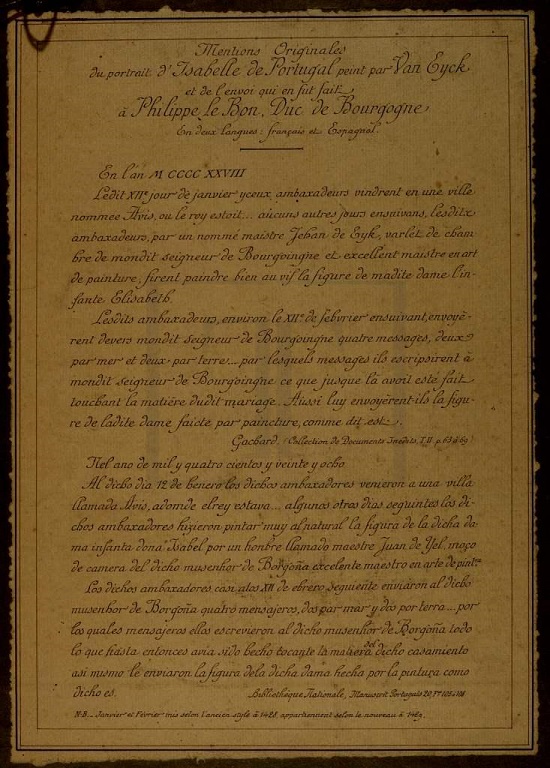 Mentions Originales
du portrait d'Isabelle de Portugal peint par Van Eyck
et de l'envoi qui en fut fait
à Philippe le Bon, Duc de Bourgogne
En deux langues: français et Espagnol.
En l'an M CCCC XXVIII
Ledit XIIe jour de janvier yceux ambaxadeurs vindrent en une ville
nommee Avis, ou le roy estoit... aucuns autres jours ensuivans, lesditz
ambaxadeurs, par un nommé maistre Jehan de Eyk, varlet de cham-
bre de mondit seigneur de Bourgoingne et excellent maistre en art
de painture, firent paindre bien au vif la figure de madite dame l'in-
fante Elisabeth.
Lesdits ambaxadeurs, environ le XIIe de febvrier ensuivant, envoyè-
rent devers mondit Seigneur de Bourgoingne quatre messages, deux
par mer et deux par terre... par lesquels messages ils escripsirent à
mondit seigneur de Bourgoingne ce que jusque là avoit esté fait
touchant la matière dudit mariage. Aussi luy envoyèrent-ils la figu-
re de ladite dame faicte par paincture, comme dit est.
Gachard. (Collection de Documents Inédits, T. II p. 63 à 69)
Nel ano de mil y quatro cientos y veinte y ocho
Al dicho dia 12 de henero los dichos ambaxadores venieron a una villa
llamada Avis, adomde el rey estava... algunos otros dias seguintes los di-
chos ambaxadores hizieron pintar muy al natural la figura de la dicha da-
ma infanta dona Isabel por un honbre llamado maestre Juan de Yel, moço
de camera del dicho musenhor de Borgoña excelente maestro en arte de pintra
Los dichos ambaxadores casi alos XII de ebrero seguiente enviaron al dicho
musenhor de Borgoña quatro mensajeros, dos par mar y dos por terra.... por
los quales mensajeros ellos escrevieron al dicho musenhor de Borgoña todo
lo que fasta entonces avia sido hecho tocante la matiera del dicho casamiento
asi mismo le enviaron la figura dela dicha dama hecha por la pintura como
dicho es.
Bibliothèque Nationale, Manuscrit Portugais 20, Fos
N.B. _ Janvier et Février mis selon l'ancien style à 1428 appartiennent selon le nouveau à 1429.